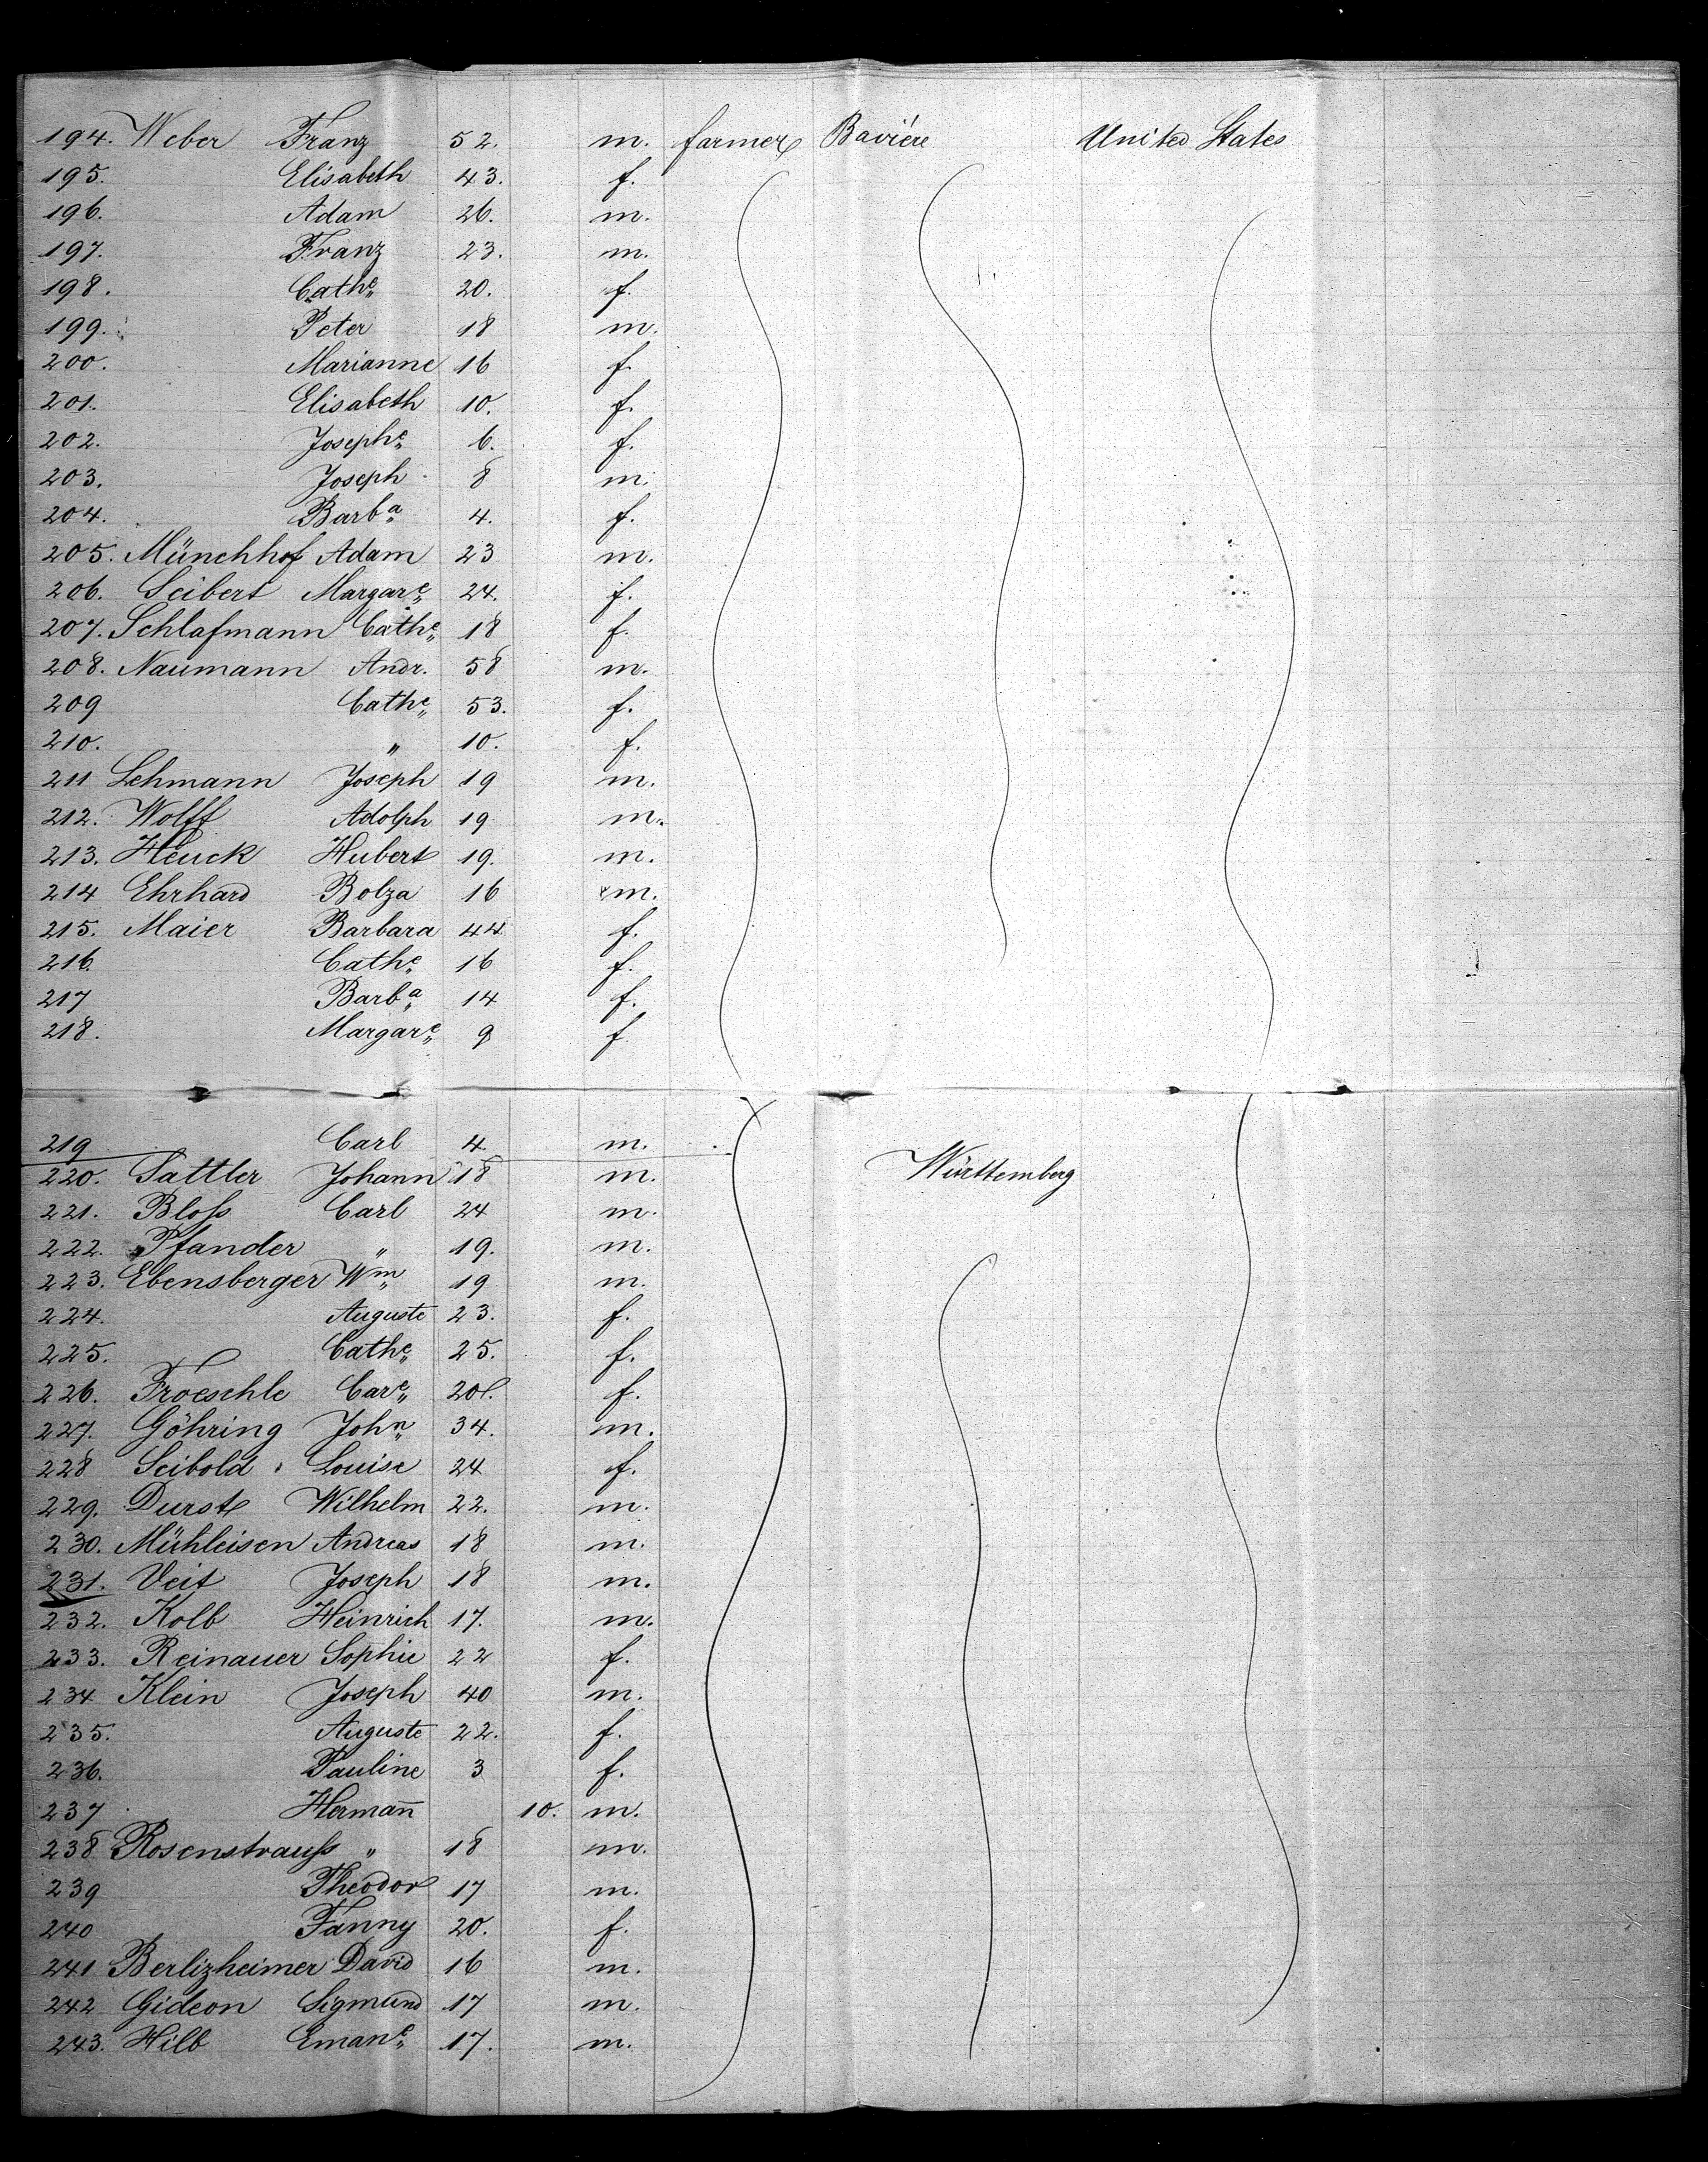 194. Weber Franz 52. m. farmer Baviére United States
195. Elisabeth 43. f.
196. Adam 26. m.
197. Franz 23. m.
198. Cathe 20. f.
199. Peter 18 m.
200. Marianne 16 f.
201. Elisabeth 10. f.
202. Josephe 6. f.
203. Joseph 8 m.
204. Barba 4. f.
205. Münchhof Adam 23 m.
206. Seibert Margare 24. f.
207. Schlafmann Cathe 18 f.
208. Naumann Andr. 58 m.
209 Cathe 53. f.
210. " 10. f.
211 Lehmann Joseph 19 m.
212. Wolff Adolph 19 m.
213. Heuck Hubert 19. m.
214 Ehrhard Bolza 16 m.
215. Maier Barbara 44 f.
216. Cathe 16 f.
217 Barba 14 f.
218. Margare 9 f
219 Carl 4. m.
220. Sattler Johann 18 m. Württemberg
221. Bloſs Carl 24 m.
222. Pfander " 19. m.
223. Ebensberger Wm 19 m.
224. Auguste 23. f.
225. Cathe 25. f.
226. Froeschle Care 20. f.
227. Göhring John 34. m.
228 Seibold Louise 24 f.
229. Durst Wilhelm 22. m.
230. Mühleisen Andreas 18 m.
231. Veit Joseph 18 m.
232. Kolb Heinrich 17. m.
233. Reinauer Sophie 22 f.
234 Klein Joseph 40 m.
235. Auguste 22. f.
236. Pauline 3 f.
237 Herman̄ 10. m.
238 Rosenstrauſs " 18 m.
239 Theodor 17 m.
240 Fanny 20. f.
241 Berlizheimer David 16 m.
242 Gideon Sigmund 17 m.
243. Hilb Emane 17. m.